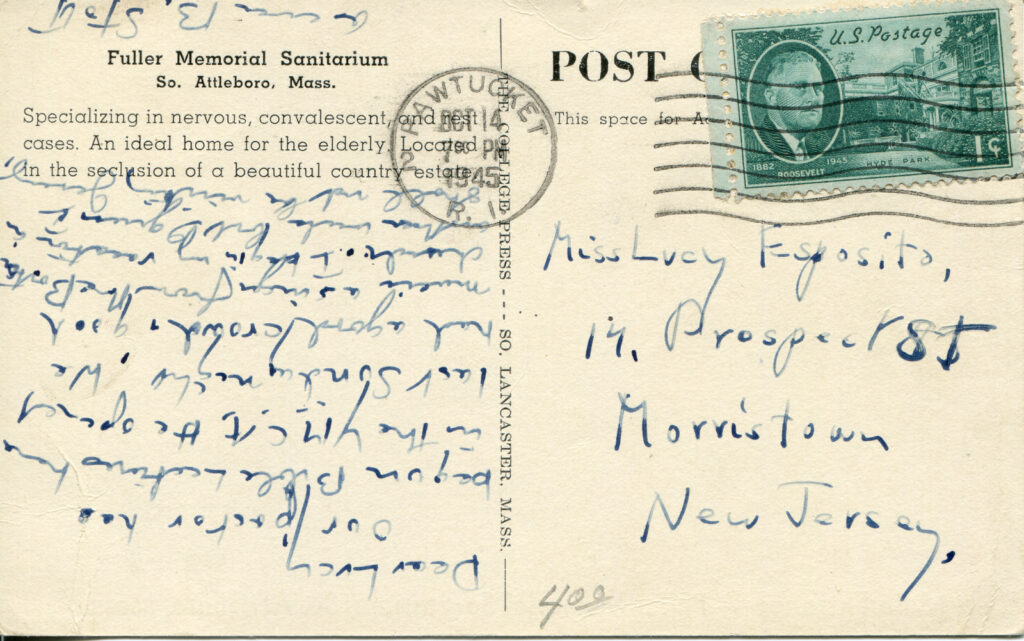 Fuller Memorial Sanitarium
So. Attleboro, Mass.
Specializing in nervous, convalescent, and rest
cases. An ideal home for the elderly. Located
in the seclusion of a beautiful country estate.
Dear Lucy
Our pastor has
begun Bible Lectures here
in the Y.M.C.A. He opened
last Sunday night, We
had a good crowd & good
music a singer from the Boston
church. I begin my vacation in
weeks but I guess I
shall not be visiting Jersey,
B.
THE COLLEGE PRESS --- SO. LANCASTER, MASS.
POST
This space for
PAWTUCKET
OCT 14
7 PM
1945
R. I.
2
U.S. Postage
1882 ROOSEVELT 1945 HYDE PARK 1¢
Miss Lucy Esposito,
14, Prospect St
Morristown
New Jersey.
400